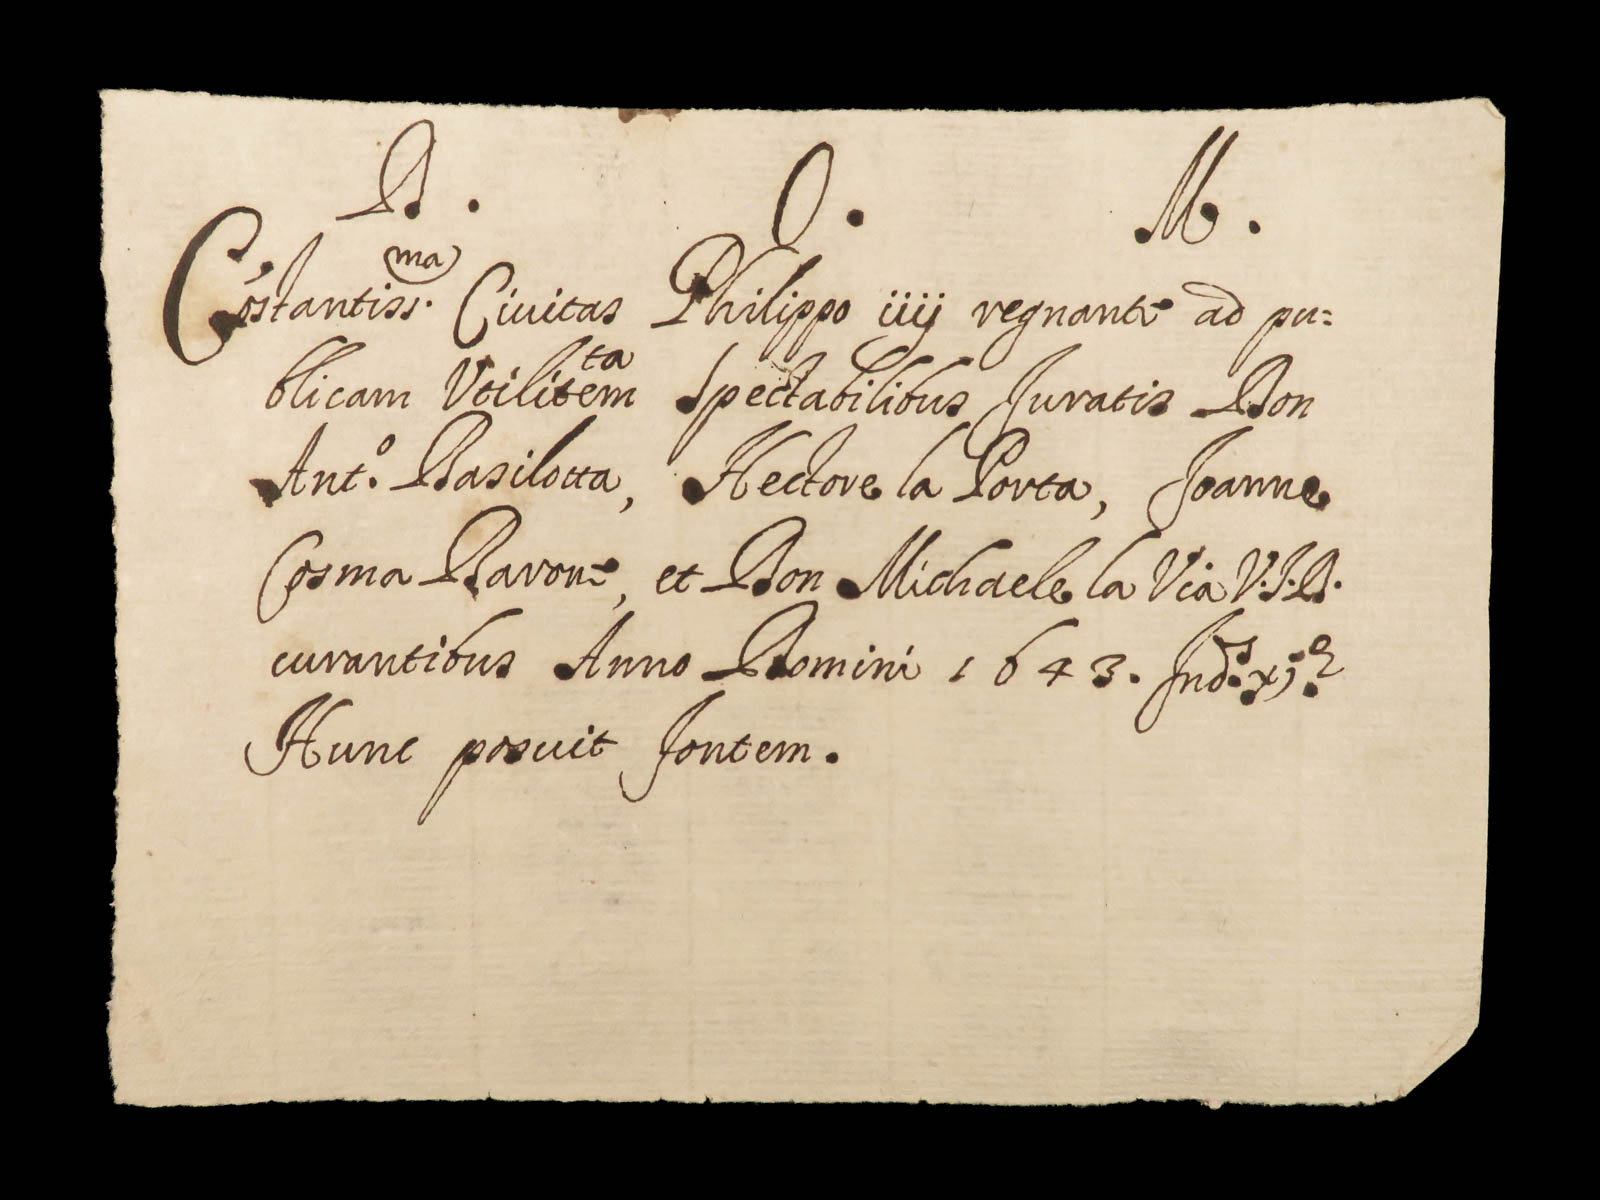 D. O. M.
Cōstantiss.ma Civitas Philippo iiij regnante ad pu=
blicam Vtilitatem Spectabilibus Juratis Don
Ant.o Basilotta, Hectore la Porta, Joanne
Cosma Barone, et Don Michaele la Via V.J.D.
curantibus Anno Domini 1643. Ind.s xj.e
Hunc posuit fontem.